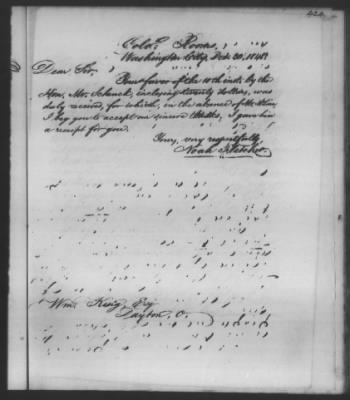 Cold. Rooms,
Washington City, Feb. 20, 1847
Dear Sir,
Your favor of the 10th inst. by the
Hon. Mr. Schenck, enclosing twenty dollars, was
duly received, for which, in the absence of
I beg you to accept my sincere thanks, I gave him
a receipt for you.
Yours, very respectfully
Noah Fletcher.
Wm. King, Esq
Dayton, O.